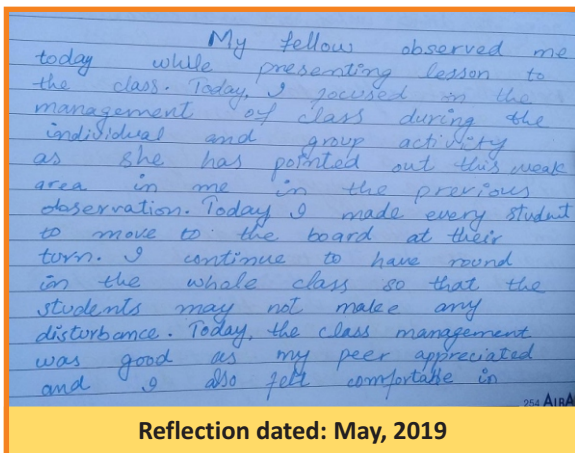 My fellow observed me
today while presenting lesson to
the class. Today, I focused in the
management of class during the
individual and group activity
as she has pointed out this weak
area in me in the previous
observation. Today I made every student
to move to the board at their
turn. I continue to have round
in the whole class so that the
students may not make any
disturbance. Today, the class management
was good as my peer appreciated
and I also felt comfortable in
254 AIRA
Reflection dated: May, 2019